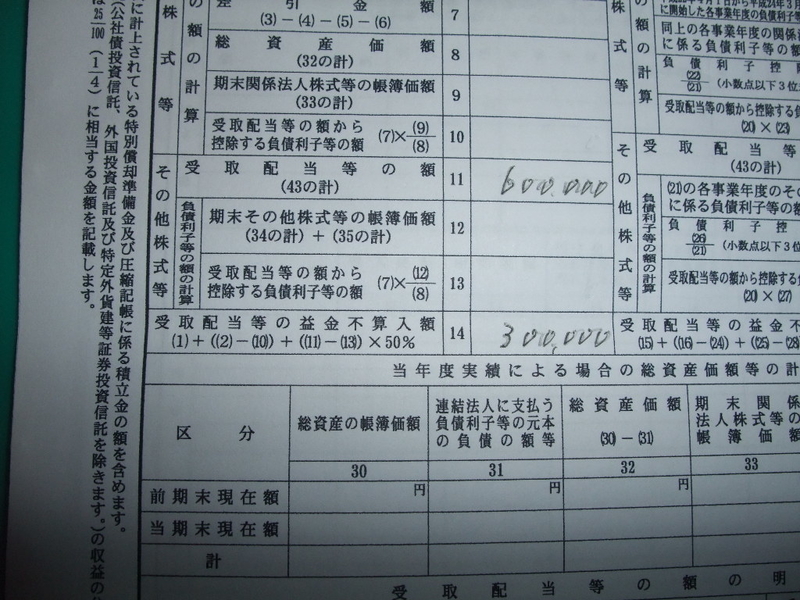 差引金額
(3)-(4)-(5)-(6)
7
総資産価額
(32の計)
8
期末関係法人株式等の帳簿価額
(33の計)
9
受取配当等の額から
控除する負債利子等の額
(7)×(9)/(8)
10
株式等
の額の計算
その他株式等
受取配当等の額
(43の計)
11
600,000
負債利子等の額の計算
期末その他株式等の帳簿価額
(34の計)+(35の計)
12
受取配当等の額から
控除する負債利子等の額
(7)×(12)/(8)
13
受取配当等の益金不算入額
(1)+((2)-(10))+((11)-(13))×50%
14
300,000
に開始した各事業年度の負債利子
同上の各事業年度の関係
に係る負債利子等の額
負債利子控除
(22)/(21)
(小数点以下3位
受取配当等の額から控除する負
(20)×(23)
株式等
の額の計算
その他株式等
受取配当等
(43の計)
負債利子等の額の計算
(21)の各事業年度のその
に係る負債利子等の額
負債利子控
(26)/(21)
(小数点以下3位
受取配当等の額から控除する負
(20)×(27)
受取配当等の益金不
(15)+((16)-(24))+((25)-(28
当年度実績による場合の総資産価額等の計
区分
総資産の帳簿価額
連結法人に支払う
負債利子等の元本
の負債の額等
総資産価額
(30)-(31)
期末関係
法人株式等の
帳簿価額
30
31
32
33
前期末現在額
円
円
円
当期末現在額
計
受取配当等の額の明
に計上されている特別償却準備金及び圧縮記帳に係る積立金の額を含めます。
(公社債投資信託、外国投資信託及び特定外貨建等証券投資信託を除きます。)の収益の
は25/100(1/4)に相当する金額を記載します。